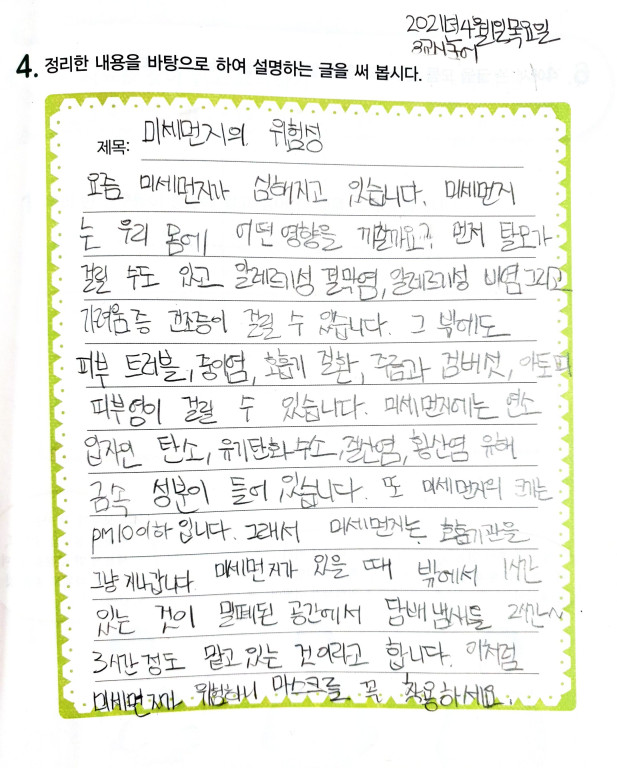 2021년4월1일목요일
3교시국어
4. 정리한 내용을 바탕으로 하여 설명하는 글을 써 봅시다.
제목: 미세먼지의 위험성
요즘 미세먼지가 심해지고 있습니다. 미세먼지
는 우리 몸에 어떤영향을 끼할까요? 먼저 탈모가
걸릴 수도 있고 알레르기성 결막염, 알레르기성 비염 그리고
가려움증 건조증이 걸릴 수 있습니다. 그 밖에도
피부 트러블, 중이염, 호흡기 질환, 주름과 검버섯, 아토피
피부염이 걸릴 수 있습니다. 미세먼지에는 연소
입자인 탄소, 유기탄화수소, 질산염, 황산염 유해
금속 성분이 들어 있습니다. 또 미세먼지의 크기는
pm10이하 입니다. 그래서 미세먼지는 호흡기관을
그냥 지나갑니다 미세먼지가 있을 때 밖에서 1시간
있는 것이 밀폐된 공간에서 담배 냄새를 2시간~
3시간정도 맡고있는 것이라고 합니다. 이처럼
미세먼지가 위험하니 마스크를 꼭 착용하세요.